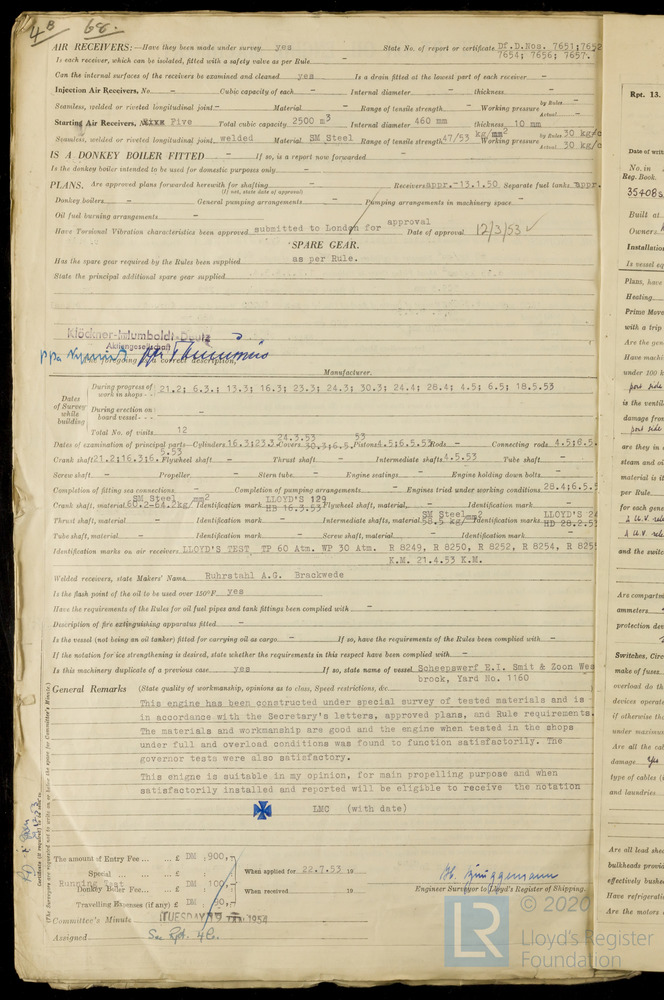 4B 68.
AIR RECEIVERS:—Have they been made under survey yes State No. of report or certificate Df.D.Nos. 7651;7652
7654; 7656; 7657.
Is each receiver, which can be isolated, fitted with a safety valve as per Rule -
Can the internal surfaces of the receivers be examined and cleaned yes Is a drain fitted at the lowest part of each receiver -
Injection Air Receivers, No. - Cubic capacity of each - Internal diameter - thickness -
Seamless, welded or riveted longitudinal joint - Material - Range of tensile strength - Working pressure by Rules - Actual -
Starting Air Receivers, Five Total cubic capacity 2500 m3 Internal diameter 460 mm thickness 10 mm
Seamless, welded or riveted longitudinal joint welded Material SM Steel Range of tensile strength 47/53 kg/mm2 Working pressure by Rules 30 kg/c Actual 30 kg/c
IS A DONKEY BOILER FITTED - If so, is a report now forwarded -
Is the donkey boiler intended to be used for domestic purposes only -
PLANS. Are approved plans forwarded herewith for shafting - Receivers appr.-13.1.50 Separate fuel tanks appr.
(If not, state date of approval)
Donkey boilers - General pumping arrangements - Pumping arrangements in machinery space -
Oil fuel burning arrangements -
Have Torsional Vibration characteristics been approved submitted to London for approval Date of approval 12/3/53
SPARE GEAR.
Has the spare gear required by the Rules been supplied as per Rule.
State the principal additional spare gear supplied
Klöckner-Humboldt-Deutz
Aktiengesellschaft
ppa ppa
The foregoing is a correct description,
Manufacturer.
Dates of Survey while building
During progress of work in shops - - 21.2; 6.3.; 13.3; 16.3; 23.3; 24.3; 30.3; 24.4; 28.4; 4.5; 6.5; 18.5.53
During erection on board vessel - - - -
Total No. of visits 12
Dates of examination of principal parts—Cylinders 16.3;23.3 24.3.53 Covers 30.3;6.5. 53 Pistons 4.5;6.5.53 Rods - Connecting rods 4.5;6.5.
Crank shaft 21.2;16.3;6. 5.53 Flywheel shaft - Thrust shaft - Intermediate shafts 4.5.53 Tube shaft -
Screw shaft - Propeller - Stern tube - Engine seatings - Engine holding down bolts -
Completion of fitting sea connections - Completion of pumping arrangements - Engines tried under working conditions 28.4;6.5.5
Crank shaft, material SM Steel 60.2-64.2kg/mm2 Identification mark LLOYD'S 129 HB 16.3.53 Flywheel shaft, material - Identification mark -
Thrust shaft, material - Identification mark - Intermediate shafts, material SM Steel 58.5 kg/mm2 Identification marks LLOYD'S 24 HD 28.2.5
Tube shaft, material - Identification mark - Screw shaft, material - Identification mark -
Identification marks on air receivers LLOYD'S TEST TP 60 Atm. WP 30 Atm. R 8249, R 8250, R 8252, R 8254, R 825
K.M. 21.4.53 K.M.
Welded receivers, state Makers' Name Ruhrstahl A.G. Brackwede
Is the flash point of the oil to be used over 150°F. yes
Have the requirements of the Rules for oil fuel pipes and tank fittings been complied with -
Description of fire extinguishing apparatus fitted -
Is the vessel (not being an oil tanker) fitted for carrying oil as cargo - If so, have the requirements of the Rules been complied with -
If the notation for ice strengthening is desired, state whether the requirements in this respect have been complied with -
Is this machinery duplicate of a previous case yes If so, state name of vessel Scheepswerf E.I. Smit & Zoon Wes
brock, Yard No. 1160
General Remarks (State quality of workmanship, opinions as to class, Speed restrictions, &c.
This engine has been constructed under special survey of tested materials and is
in accordance with the Secretary's letters, approved plans, and Rule requirements.
The materials and workmanship are good and the engine when tested in the shops
under full and overload conditions was found to function satisfactorily. The
governor tests were also satisfactory.
This enigne is suitable in my opinion, for main propelling purpose and when
satisfactorily installed and reported will be eligible to receive the notation
LMC (with date)
The amount of Entry Fee ... £ DM 900,-
Special ... £ DM
Running Test
Donkey Boiler Fee... £ DM 100,-
Travelling Expenses (if any) £ DM 90,-
When applied for 22.7.53 19
When received 19
Engineer Surveyor to Lloyd's Register of Shipping.
Committee's Minute TUESDAY 19 JAN 1954
Assigned See Rpt. 4b.
(The Surveyors are requested not to write on or below the space for Committee's Minute.)
Rpt. 13.
Date of writ
No. in
Reg. Book.
35408
Built at
Owners
Installation
Is vessel eq
Plans, have
Heating
Prime Move
with a trip
Are the gen
Have machi
under 100 k
port side
is the ventil
damage from
port side
are they in
steam and oi
material is it
per Rule
for each gene
and the switc
Are compartm
ammeters
protection dev
Switches, Circ
make of fuses
overload do th
devices operate
if otherwise tha
under maximum
Are all the cab
damage yes
type of cables (i
and laundries
Are all lead shea
bulkheads provid
effectively bushe
Have refrigerati
Are the motors
© 2020
LR
Lloyd's Register
Foundation